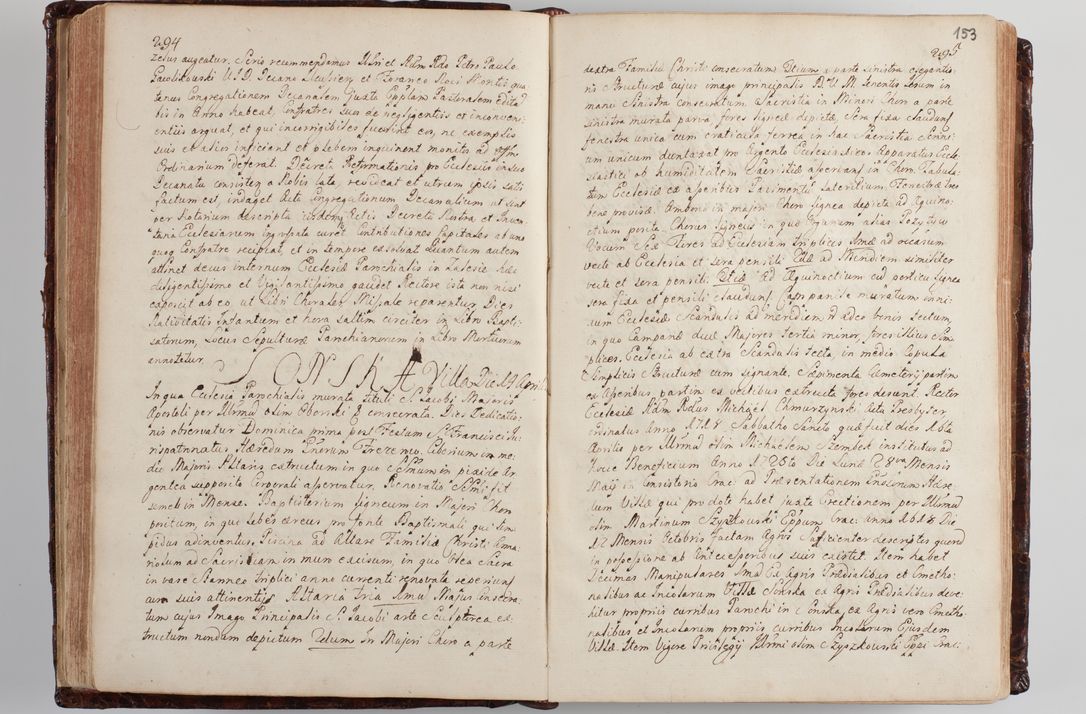 294
zelus augeatur. Serio recommendamus Illri et Adm Rdo Petro Paulo
Pawlikowski U.J.D. Decano et Foraneo Loci Montis qua-
tenus Congregationem Decanalem juxta Epplam Pastoralem edita
bis in Anno habeat, Confratres suos de negligentiis et inconveni-
entiis arguat, et qui incorrigibiles fuerint eos, ne exemplis
suis et alios inficiant et plebem inquinent monitos ad Offm
Ordinarium deferat. Decret Reformationis pro Ecclesiis in suo
Decanatu consisten a Nobis lata, revideat et utrum ipsis satis
factum est, indaget. Acta Congregationum Decanalium ut sint
per Notarium descripta iisdem Actis Decreta Nostra et Inven-
taria Ecclesiarum ingrossata curet Contributiones Capitales ab uno
quoq Confratre recipiat, et in tempore exsolvat. Quantum autem
attinet decus internum Ecclesiæ Parochialis in Zalesie hæc
diligentissimo et Vigilantissimo gaudet Rectore ista non nisi
exposcit ab eo, ut Libri Chorales Missale reparentur Dies
Nativitatis Infantum et hora saltim circiter in Libro Bapti-
satorum, Locus Sepulturæ Parochianorum in Libro Mortuorum
annotatur.
SONSKA Villa Die 14 Aprilis
In qua Ecclesia Parochialis murata tituli S. Jacobi Majoris
Apostoli per Illrmu olim Oborski E consecrata. Dies Dedicatio-
nis observatur Dominica prima post Festum S. Francisci Ju-
rispatrnatus Hæredum Ciborium in me-
dio Majoris Altaris exstructum in quo Ssmum in pixide Ar-
gentea supposito Corporali asservatur. Renovatio Ssmi fit
semel in Mense. Baptisterium ligneum in Majori Chori
positum, in quo lebes æreus pro fonte Baptismali qui lim-
pidus adinventus. Piscina ad Altare Familiæ Christi Arma-
riolum ad Sacristiam in muro excisum, in quo Olea Sacra
in vase Stanneo triplici anno currenti renovata reperiunt
cum suis attinentiis Altaria tria 1mu Majus Consecra-
tum cujus Imago Principalis S. Jacobi arte Sculptorea ex-
tructum nondum depictum 2dum In Majori Choro a parte
153
295
dextra Familiæ Christi consecratum 3tium a parte sinistra elegantio-
ris Structuræ cujus imago principalis B.V.M. tenentis Jesum in
manu Sinistra consecratum Sacristia in Minori Choro a parte
sinistra murata parva fores ligneæ depictæ, sera fixa claudunt
Fenestra unica cum craticula ferrea in hac Sacristia Scrini-
um unicum duntaxat pro Argento Ecclesiastico Apparatus Eccle-
siastici ob humiditatem Sacristiæ asservant in Choro Tabula-
tum Ecclesiæ ex asseribus Pavimentu Lateritium Fenestræ tres
bene provisæ. Ambona in majori Choro lignea depicta ad Æquino-
ctium posita Chorus ligneus in quo Organum alias Pozytyw
Vocum Sex Fores ad Ecclesiam triplices 1mæ ad occasum
vecte ab Ecclesia et sera pensili 2dæ ad Meridiem similiter
vecte et sera pensili. 3tiæ ad Æquinoctium cu porticu lignea
sera fixa et pensili claudunt Campanile muratum conti-
uum Ecclesiæ Scandulis ad meridiem adeo benis tectum,
in quo Campanæ duæ Majores tertia minor, fores illius Sim-
plices. Ecclesia ab extra Scandulis tecta, in medio Copula
Simplicis Structuræ cum signante. Sæpimenta Cemeterij partim
ex Asseribus, partim ex vestibus extructa fores desunt. Rector
Ecclesiæ Adm Rdus Michael Chmurzynski Aeta Presbyter
ordinatus Anno 1718 Sabbatho Sancto quæ fuit dies 16ta
Aprilis per Illrmu olim Michaelem Szembek institutus ad
hocce Beneficium Anno 1725to Die Lunæ 28va Mensis
Maij in Consistorio Crac ad Præsentationem Insolarum Hære-
um Villæ qui pro dote habet juxta Erectionem per Illrmu
olim Martinum Szyszkowski Eppum Crac: anno 1618 Die
12 Mensis Octobris factam Agros Sufficienter descriptos quord
in possessione ab Antecessoribus suis existet Item habet
Decimas Manipulares 1mo Ex Agris Prædialibus et Cmetho-
nalibus ac Incolarum Villæ Sonska ex Agris Prædialibus deve-
hitur propriis curribus Parochi in Sonska, ex Agris vero Cmetho-
nalibus et Incolarum propriis curribus Incolarum Ejusdem
Villæ. Item Vigore Privilegij Illrmi olim Szyszkowski Eppi Crac: